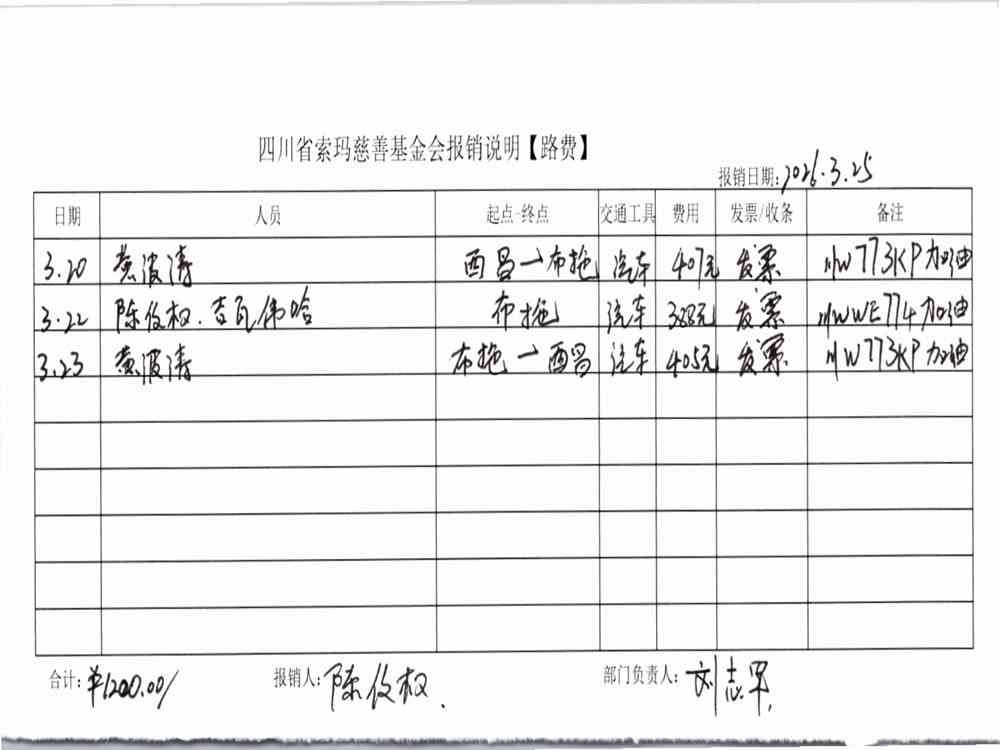 四川省索玛慈善基金会报销说明【路费】
报销日期:2026.3.25
日期 人员 起点-终点 交通工具 费用 发票/收条 备注
3.20 黄波涛 西昌→布拖 汽车 407元 发票 川W773KP加油
3.22 陈俊权.吉瓦伟哈 布拖 汽车 388元 发票 川WWE774加油
3.23 黄波涛 布拖→西昌 汽车 405元 发票 川W773KP加油
合计:¥1200.00/ 报销人:陈俊权. 部门负责人:刘志军.